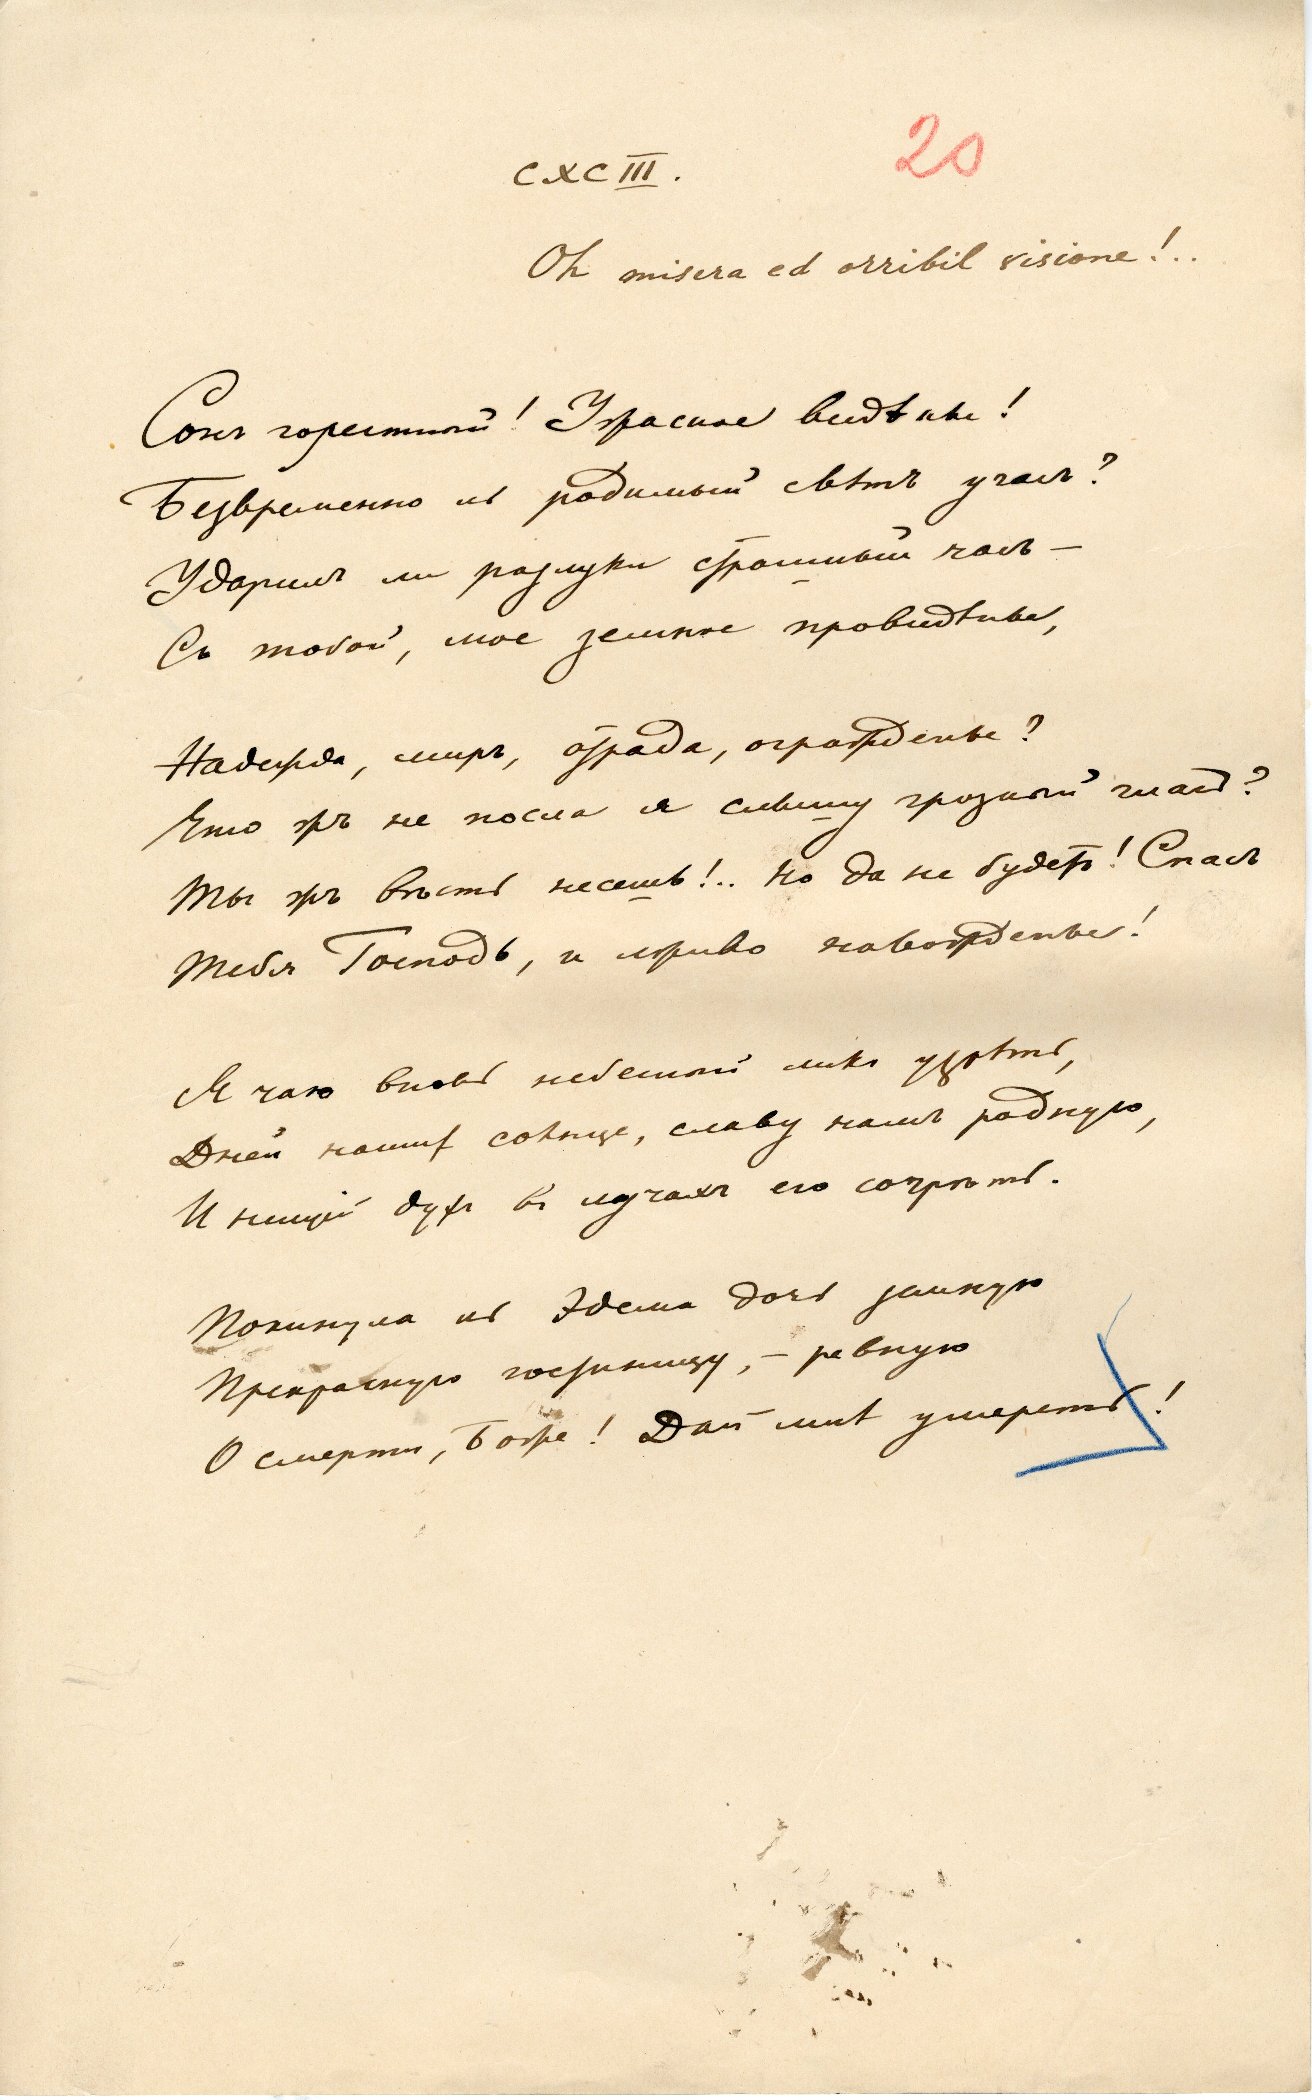 20
CXCIII.
Oh misera ed orribil visione!..
Сонъ горестный! Ужасное видѣнье!
Безвременно ль родимый свѣтъ угасъ?
Ударилъ ли разлуки страшный часъ —
Съ тобой, мое земное провидѣнье,
Надежда, миръ, отрада, огражденье?
Что жъ не посла я слышу грозный гласъ?
Ты жъ вѣсть несешь!.. Но да не будетъ! Спасъ
Тебя Господь, и лживо навожденье!
Я чаю вновь небесный ликъ узрѣть,
Дней нашихъ солнце, славу намъ родную,
И нищій духъ въ лучахъ его согрѣть.
Покинула ль Эдема дочь земную
Прекрасную гостиницу, — ревную
О смерти, Боже! Дай мнѣ умереть!